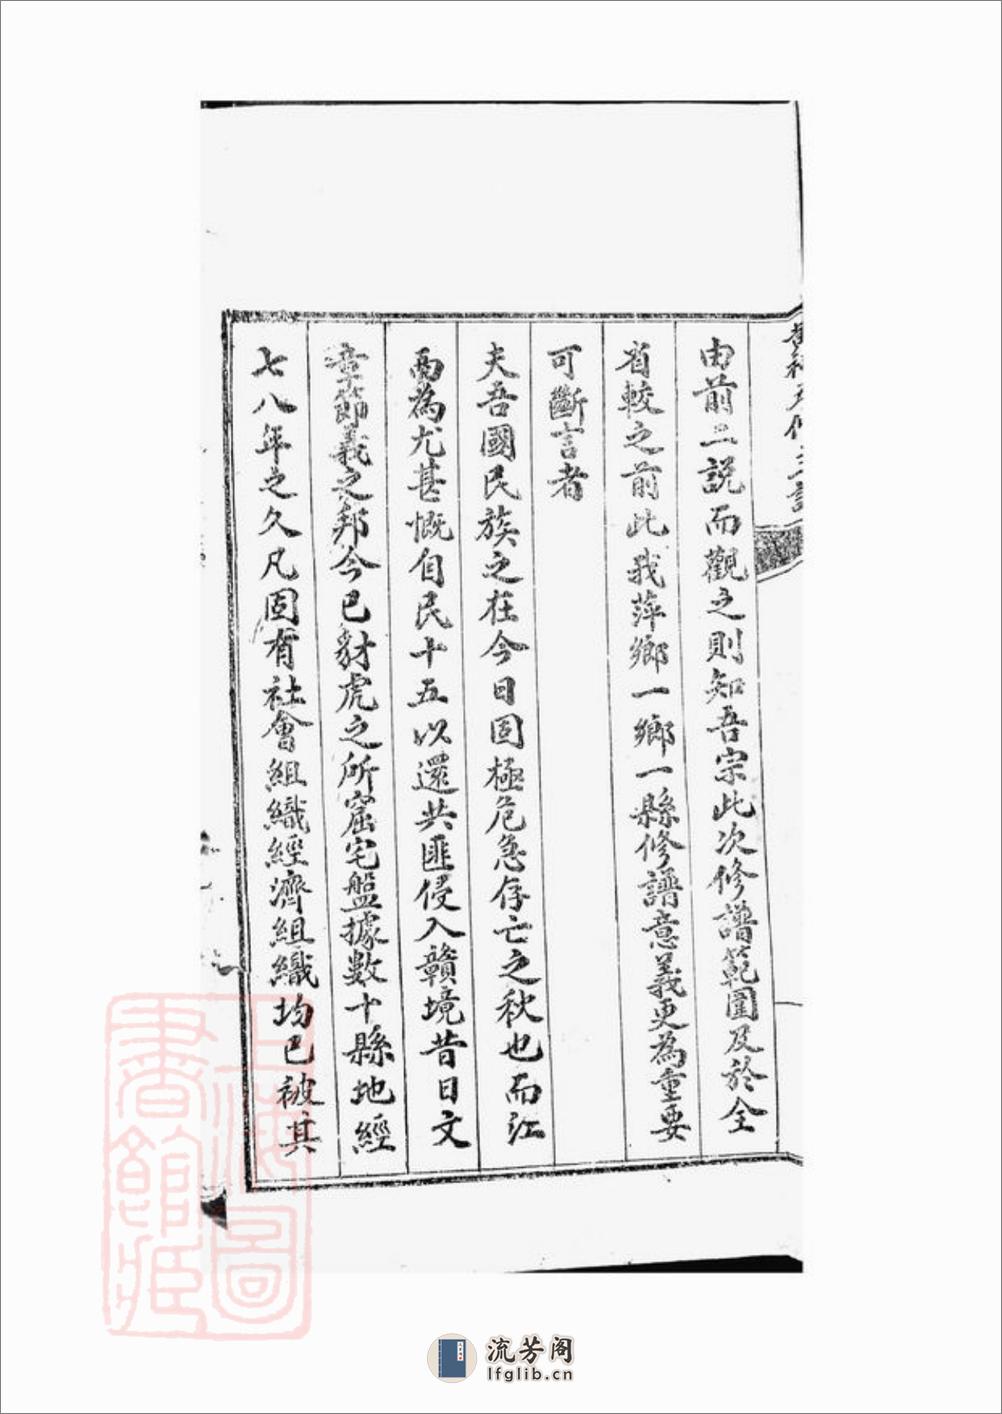 由前二説而觀之則知吾宗此次修譜範圍及於全
省較之前此我萍鄉一鄉一縣修譜意義更為重要
可斷言者
夫吾國民族之在今日固極危急存亡之秋也而江
西為尤甚慨自民十五以還共匪侵入贛境昔日文
章節義之邦今已豺虎之所窟宅盤據數十縣地經
七八年之久凡固有社會組織經濟組織均已被其
上海圖
書館藏
流芳阁
lfglib.cn